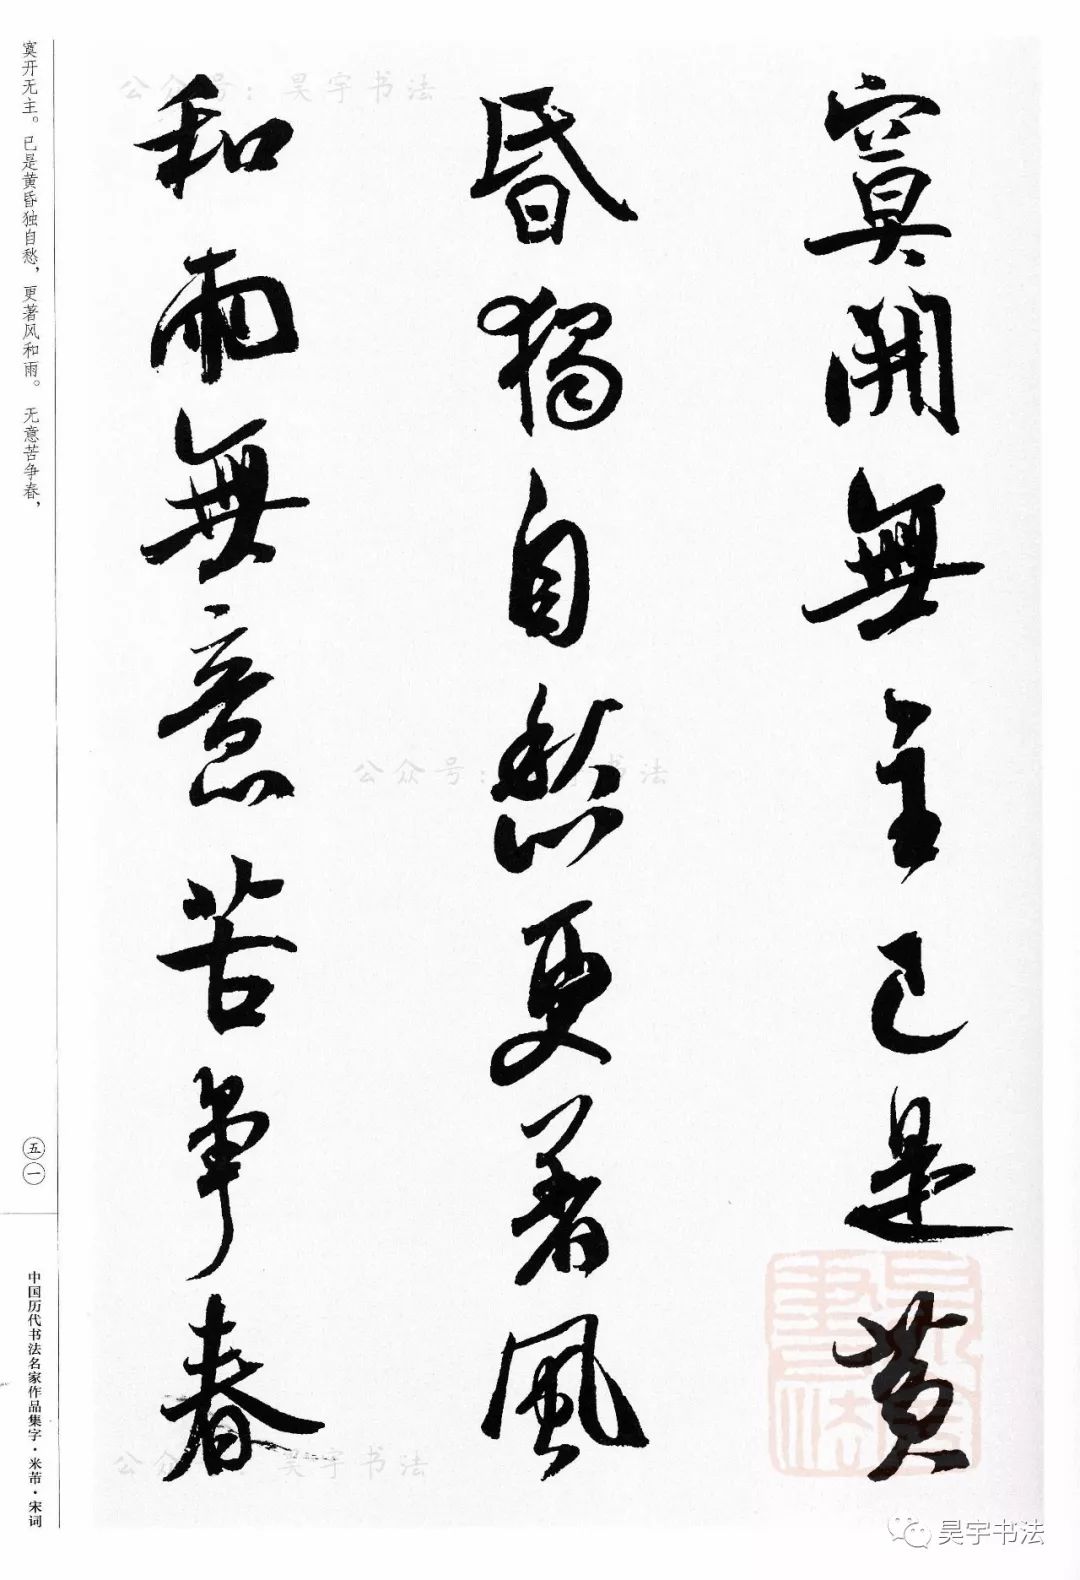 寞開無主已是黄
昏獨自愁更著風
和雨無意苦争春
寞开无主。已是黄昏独自愁，更著风和雨。 无意苦争春，
五一
中国历代书法名家作品集字·米芾·宋词
公众号：昊宇书法
公众号：昊宇书法
公众号：昊宇书法
昊宇书法
昊宇书法